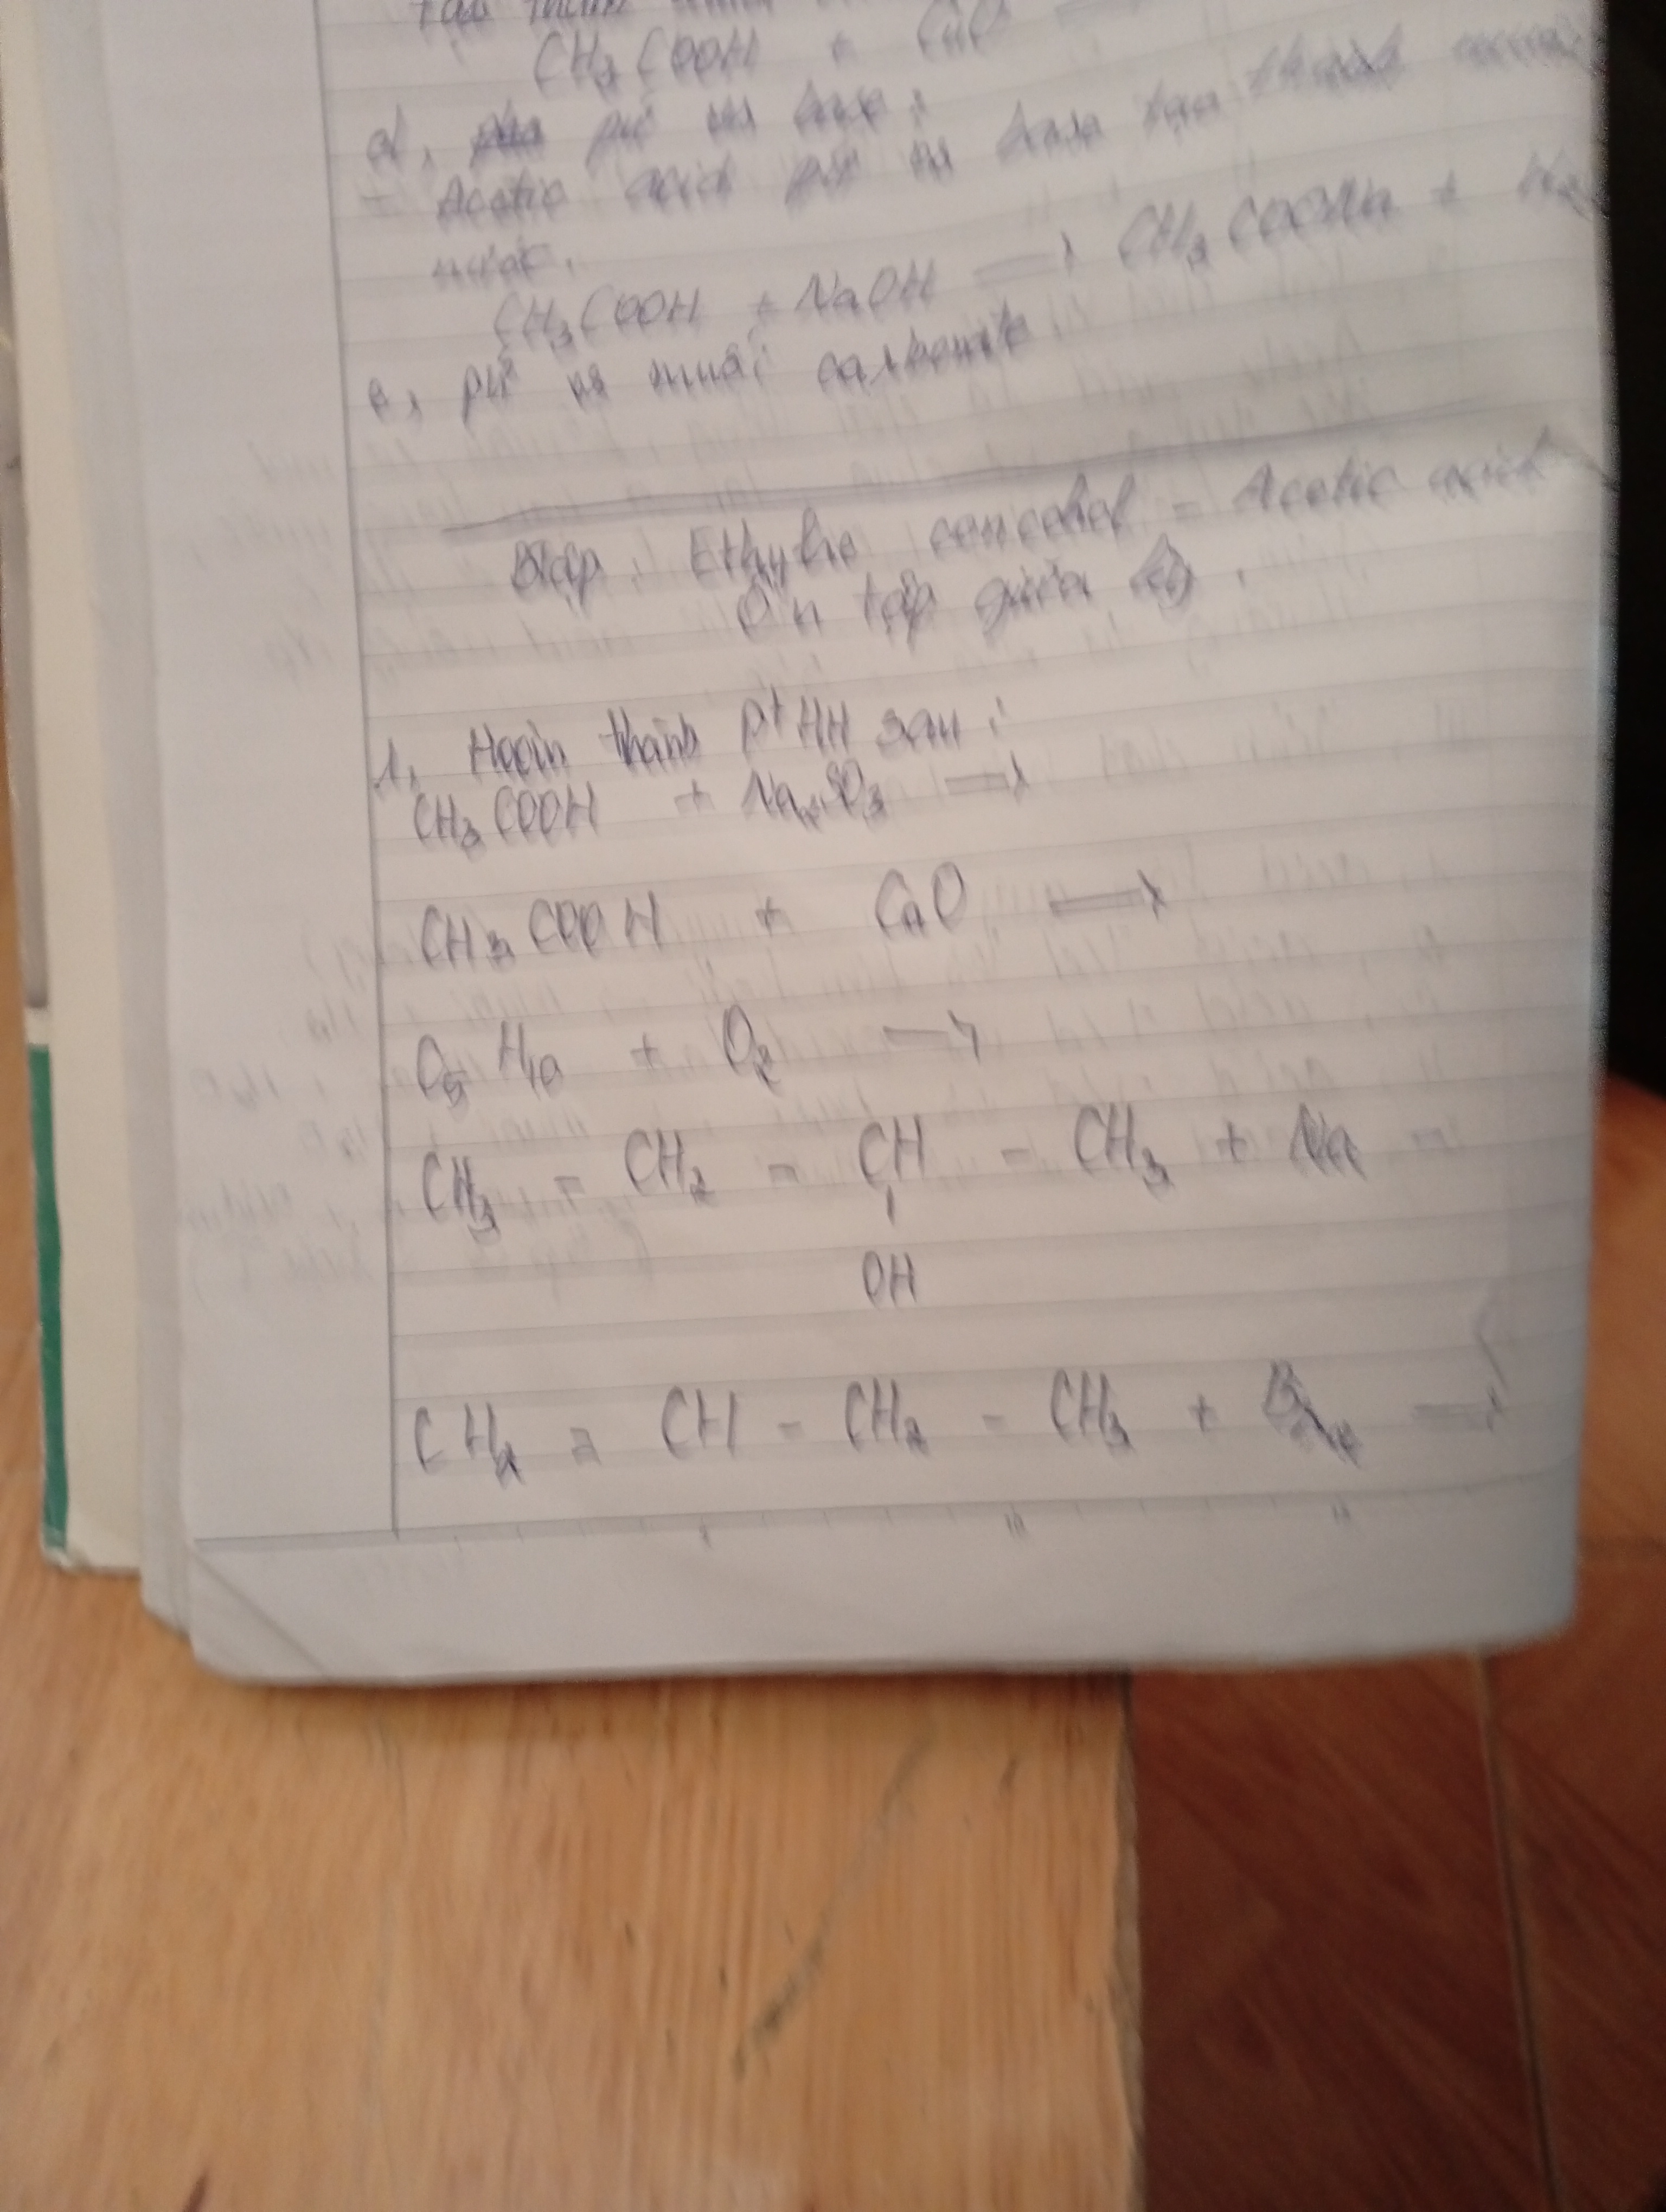 CH3COOH + CuO
d, pứ vs base:
- Acetic acid pứ vs base tạo thành
nước.
CH3COOH + NaOH → CH3COONa + H2
e, pứ vs muối carbonate
Btập: Ethylic - Acetic acid
Ôn tập giữa kỳ.
1, Hoàn thành ptHH sau:
CH3COOH + Na2SO3 →
CH3COOH + CuO →
C5H10 + O2 →
CH3 - CH2 - CH - CH3 + Na -
OH
CH2 = CH - CH2 - CH3 + →